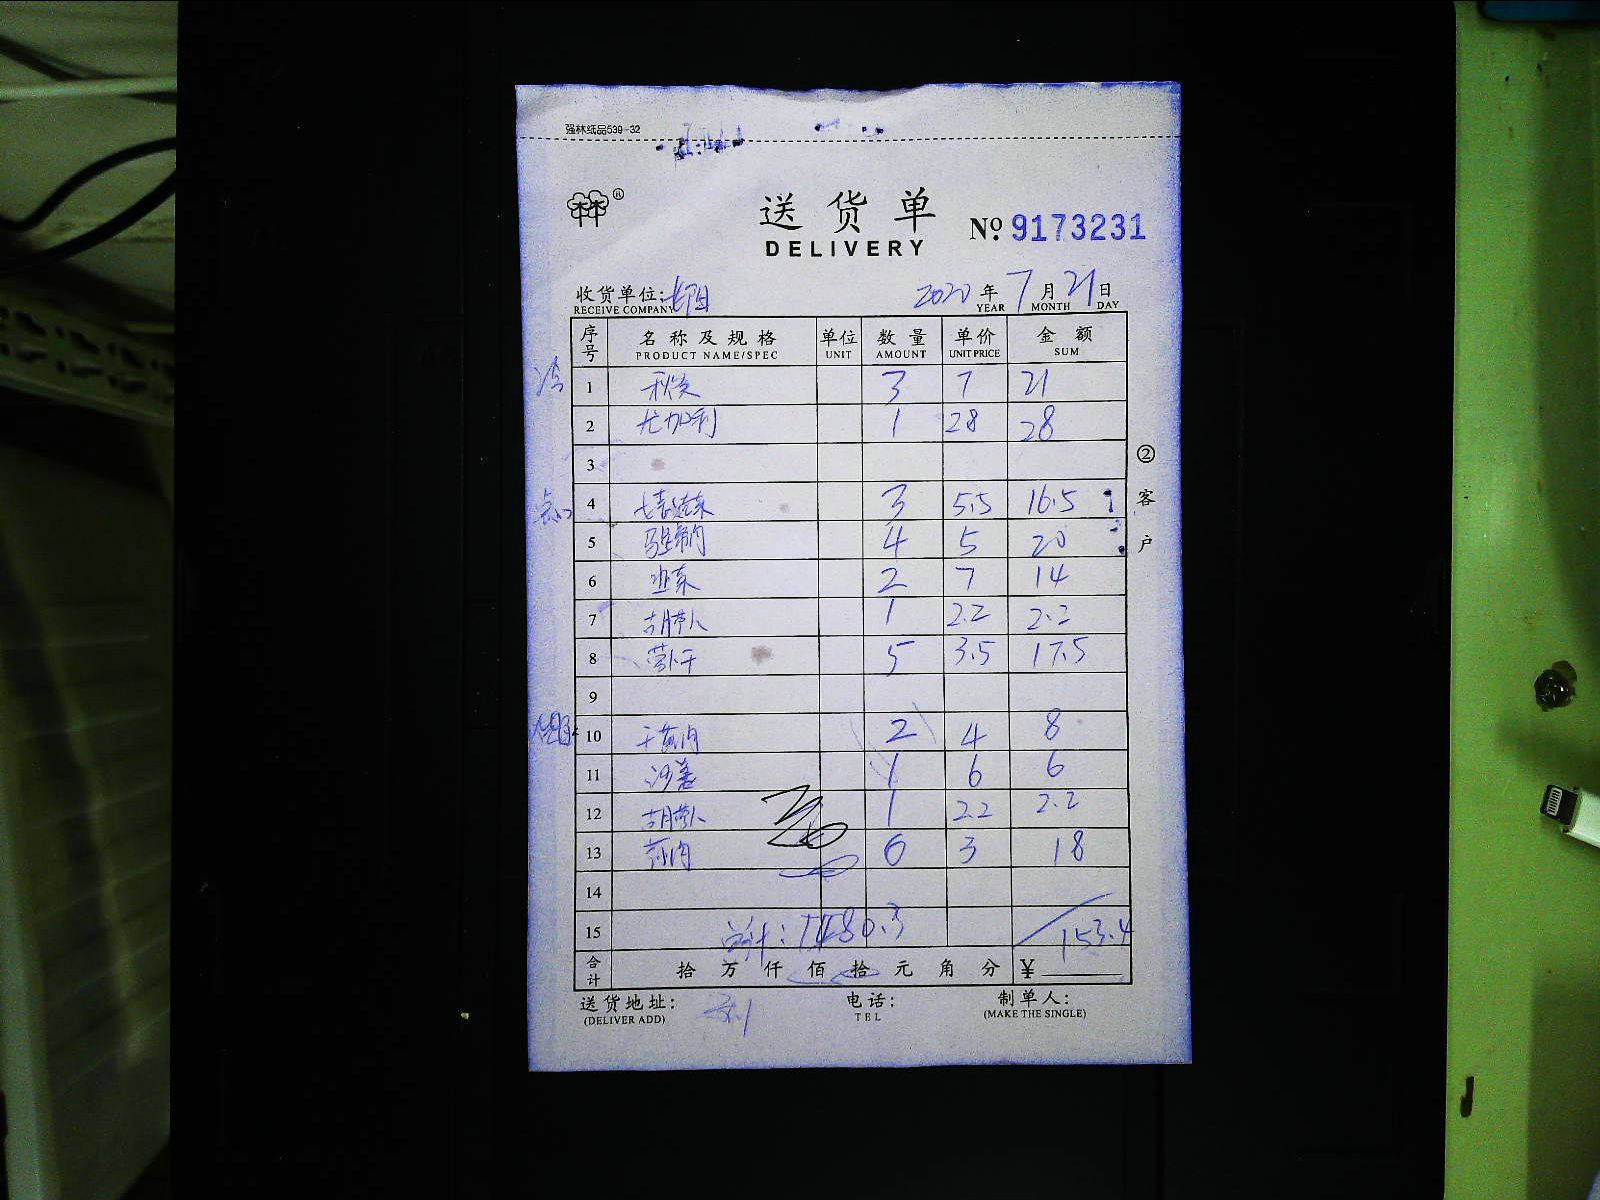 强林纸品539-32
送货单
DELIVERY
№ 9173231
收货单位:
RECEIVE COMPANY
2020 年 7 月 21 日
YEAR MONTH DAY
序号 名称及规格 单位 数量 单价 金额
PRODUCT NAME/SPEC UNIT AMOUNT UNIT PRICE SUM
1 秋葵 3 7 21
2 尤加利 1 28 28
3
4 3 5.5 16.5
5 4 5 20
6 韭菜 2 7 14
7 1 2.2 2.2
8 5 3.5 17.5
9
10 2 4 8
11 沙姜 1 6 6
12 1 2.2 2.2
13 6 3 18
14
15 153.4
合计 拾 万 仟 佰 拾 元 角 分 ¥
送货地址: 电话: 制单人:
(DELIVER ADD) TEL (MAKE THE SINGLE)
② 客户